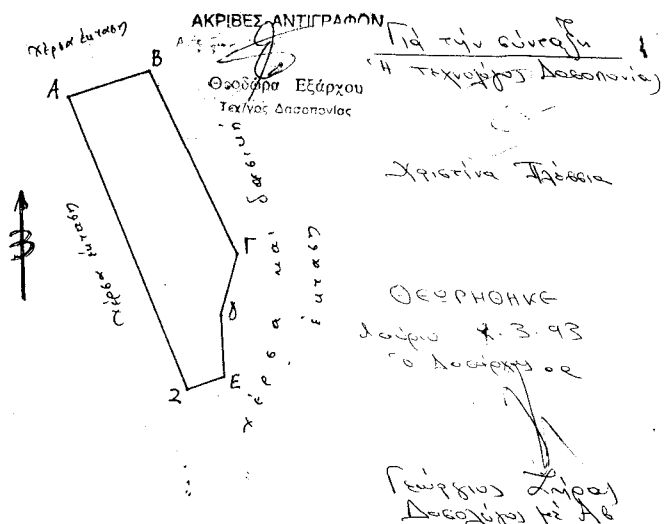 ΑΚΡΙΒΕΣ ΑΝΤΙΓΡΑΦΟΝ
Θεοδώρα Εξάρχου
Τεχ/γος Δασοπονίας
χέρσα έκταση
Α
Β
Γ
Δ
Ε
Ζ
Β
χέρσα έκταση
χέρσα και δασική
έκταση
Γιά τήν σύνταξη
Ἡ τεχνολόγος Δασοπονίας
Χριστίνα Πλέσσια
ΘΕΩΡΗΘΗΚΕ
Λαύριο .3.93
Ὁ Δασάρχης
Γεώργιος
Δασολόγος μέ Αβ